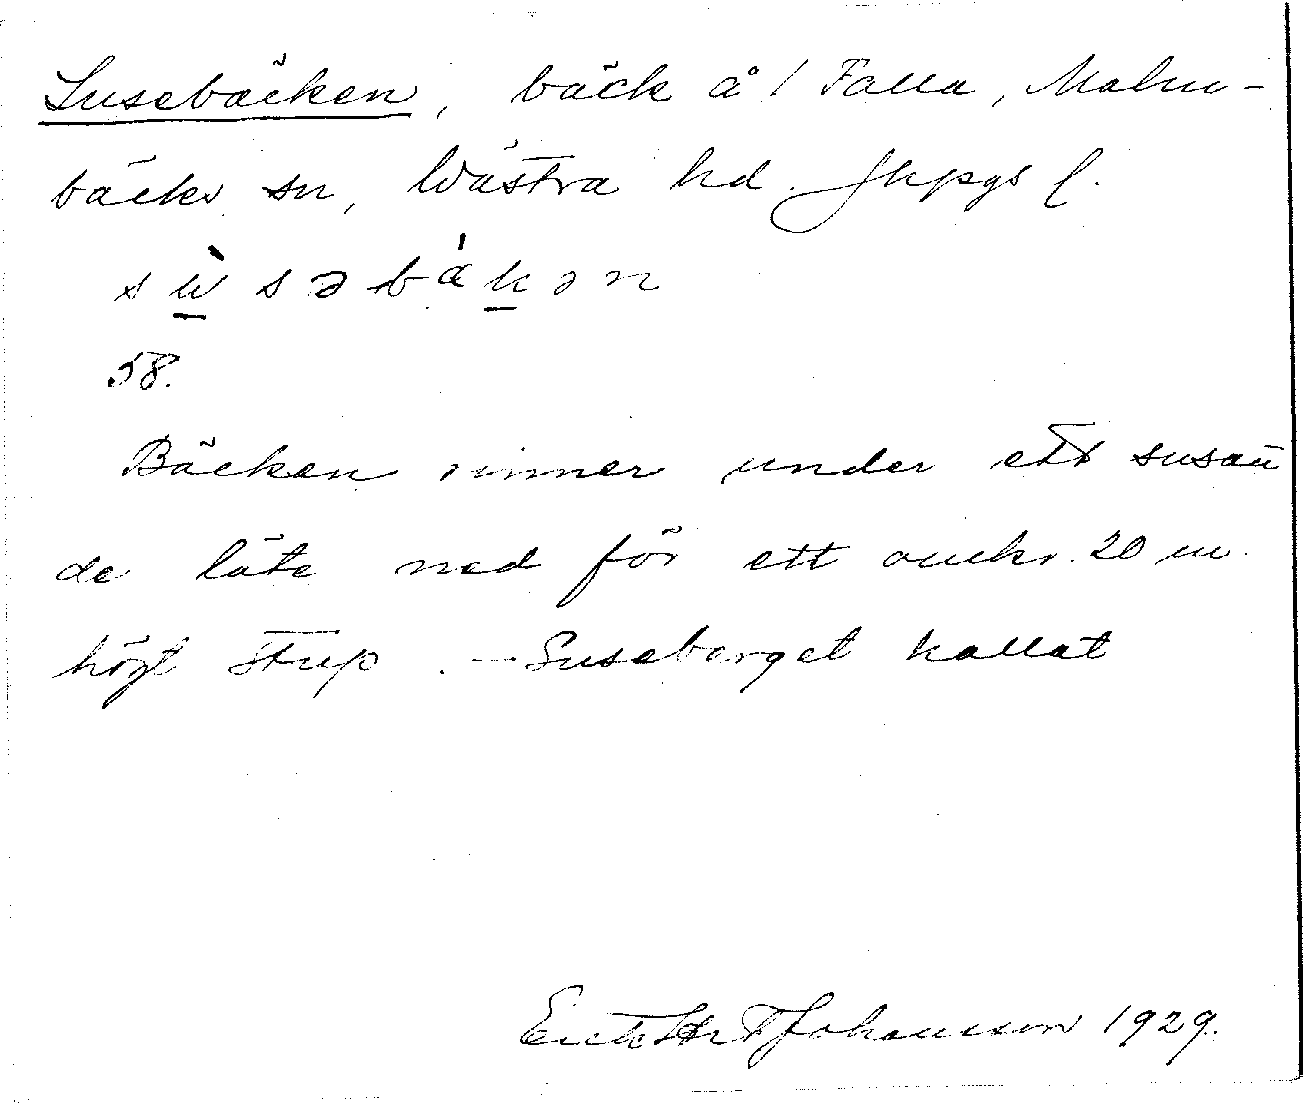 Susebäcken, bäck å 1 Falla, Malm-
bäcks sn, Västra hd. Jkpgs l.
sùsəbákən
58.
Bäcken rinner under ett susan̄
de läte ned för ett omkr. 20 m.
högt stup. — Suseberget kallat
Johansson 1929.